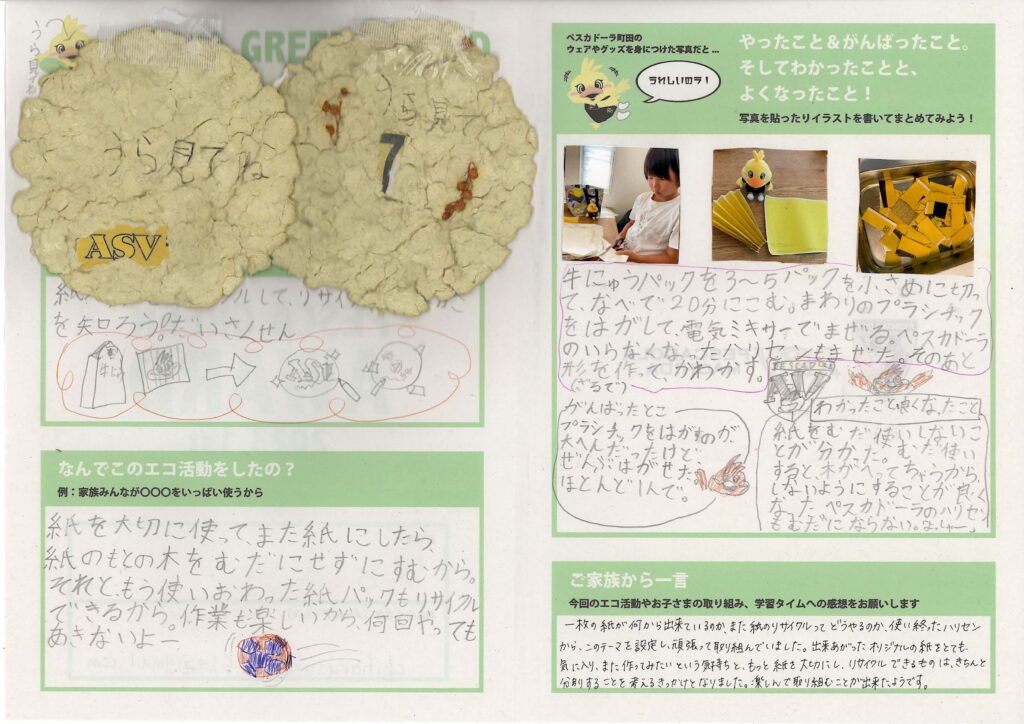 うら見てね
GREEN
D
うら見てね
ASV
うら見て
7
紙
して、リサイク
を知ろう!だいさくせん
牛にゅう
ASV
なんでこのエコ活動をしたの?
例:家族みんなが〇〇〇をいっぱい使うから
紙を大切に使って、また紙にしたら、
紙のもとの木をむだにせずにすむから。
それと、もう使いおわった紙パックもリサイクル
できるから。作業も楽しいから、何回やっても
あきないよー
ペスカドーラ町田の
ウェアやグッズを身につけた写真だと…
うれしいのラ!
やったこと&がんばったこと。
そしてわかったことと、
よくなったこと!
写真を貼ったりイラストを書いてまとめてみよう!
牛にゅうパックを3〜5パックを小さめに切っ
て、なべで20分にこむ。まわりのプラシチック
をはがして、電気ミキサーでまぜる。ペスカドーラ
のいらなくなったハリセンもまぜた。そのあと
形を作って、かわかす。
(ざるで)
ASV
がんばったとこ
プランチックをはがすのが、
大へんだったけど、
ぜんぶはがせた。
ほとんど1人で。
わかったこと良くなったこと
紙をむだ使いしないこ
とが分かった。むだ使い
すると、木がへってちゃうから、
しないようにすることが良く
なった。ペスカドーラのハリセン
もむだにならない。よっしゃー
ご家族から一言
今回のエコ活動やお子さまの取り組み、学習タイムへの感想をお願いします
一枚の紙が何から出来ているのか、また紙のリサイクルってどうやるのか、使い終ったハリセン
から、このテーマを設定し、頑張って取り組んでいました。出来あがったオリジナルの紙をとても
気に入り、また作ってみたいという気持ちと、もっと紙を大切にし、リサイクルできるものは、きちんと
分別することを考えるきっかけとなりました。楽しんで取り組むことが出来たようです。